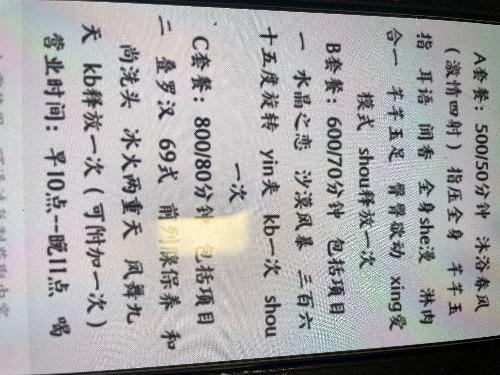 A套餐：500/50分钟 沐浴春风
（激情四射）指压全身 芊芊玉
指 耳语 闻香 全身she漫 淋肉
合一 芊芊玉足 臀臀欲动 xing爱
模式 shou释放一次
B套餐：600/70分钟 包括项目
一 水晶之恋 沙漠风暴 三百六
十五度旋转 yin夹 kb一次 shou
一次
C套餐：800/80分钟 包括项目
二 叠罗汉 69式 前列腺保养 和
尚洗头 冰火两重天 风舞九
天 kb释放一次（可附加一次）
营业时间：早10点--晚11点 喝